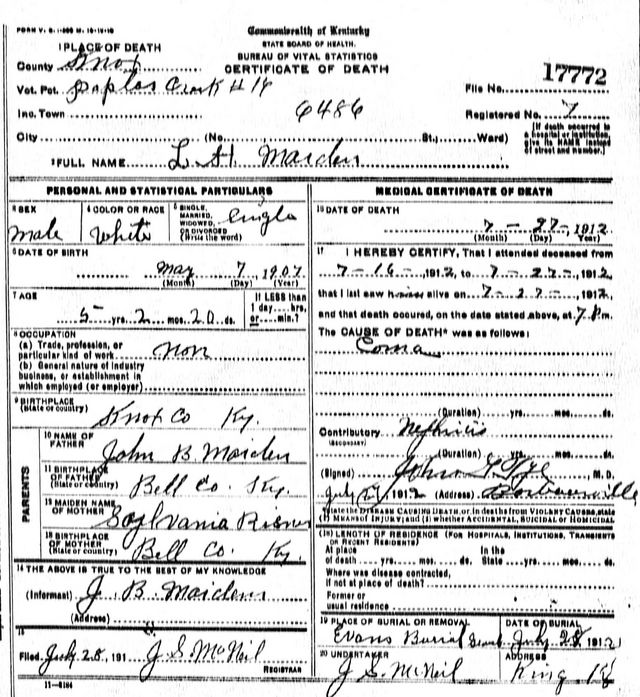 FORM V. S. 1-
Commonwealth of Kentucky
STATE BOARD OF HEALTH.
BUREAU OF VITAL STATISTICS
CERTIFICATE OF DEATH
1 PLACE OF DEATH
County Knox
Vot. Pct. Poplar Creek #18
Inc. Town 6486
City (No. St.; Ward)
File No. 17772
Registered No. 7
[If death occurred in a hospital or institution, give its NAME instead of street and number.]
2 FULL NAME L. H. Maiden
PERSONAL AND STATISTICAL PARTICULARS
3 SEX male
4 COLOR OR RACE White
5 SINGLE, MARRIED, WIDOWED, OR DIVORCED (Write the word) Single
6 DATE OF BIRTH
May 7, 1907
(Month) (Day) (Year)
7 AGE
5 yrs. 2 mos. 20 ds.
If LESS than 1 day hrs. or min.?
8 OCCUPATION
(a) Trade, profession, or particular kind of work non
(b) General nature of industry business, or establishment in which employed (or employer)
9 BIRTHPLACE
(State or country) Knox Co Ky.
PARENTS
10 NAME OF FATHER John B Maiden
11 BIRTHPLACE OF FATHER (State or country) Bell Co. Ky.
12 MAIDEN NAME OF MOTHER
13 BIRTHPLACE OF MOTHER (State or country) Bell Co. Ky.
14 THE ABOVE IS TRUE TO THE BEST OF MY KNOWLEDGE
(Informant) J. B. Maiden
(Address)
15
Filed July 28, 191 J. S. McNeil
REGISTRAR
11—6184
MEDICAL CERTIFICATE OF DEATH
16 DATE OF DEATH
7 - 27 - 1912
(Month) (Day) (Year)
17 I HEREBY CERTIFY, That I attended deceased from
7 - 16 -, 1912, to 7 - 27 -, 1912,
that I last saw him alive on 7 - 27 -, 1912,
and that death occured, on the date stated above, at 7 P m.
The CAUSE OF DEATH* was as follows:
Coma
(Duration) yrs. mos. ds.
Contributory Nephritis
(SECONDARY)
(Duration) yrs. mos. ds.
(Signed) John G Tye, M. D.
July 27, 1912 (Address) Barbourville
*State the DISEASE CAUSING DEATH, or, in deaths from VIOLENT CAUSES, state
(1) MEANS OF INJURY; and (2) whether ACCIDENTAL, SUICIDAL or HOMICIDAL
18 LENGTH OF RESIDENCE (FOR HOSPITALS, INSTITUTIONS, TRANSIENTS OR RECENT RESIDENTS)
At place of death yrs. mos. ds. In the State yrs. mos. ds.
Where was disease contracted, if not at place of death?
Former or usual residence
19 PLACE OF BURIAL OR REMOVAL
Evans Burial
DATE OF BURIAL
July 28, 1912
20 UNDERTAKER
J. S. McNeil
ADDRESS
King Ky